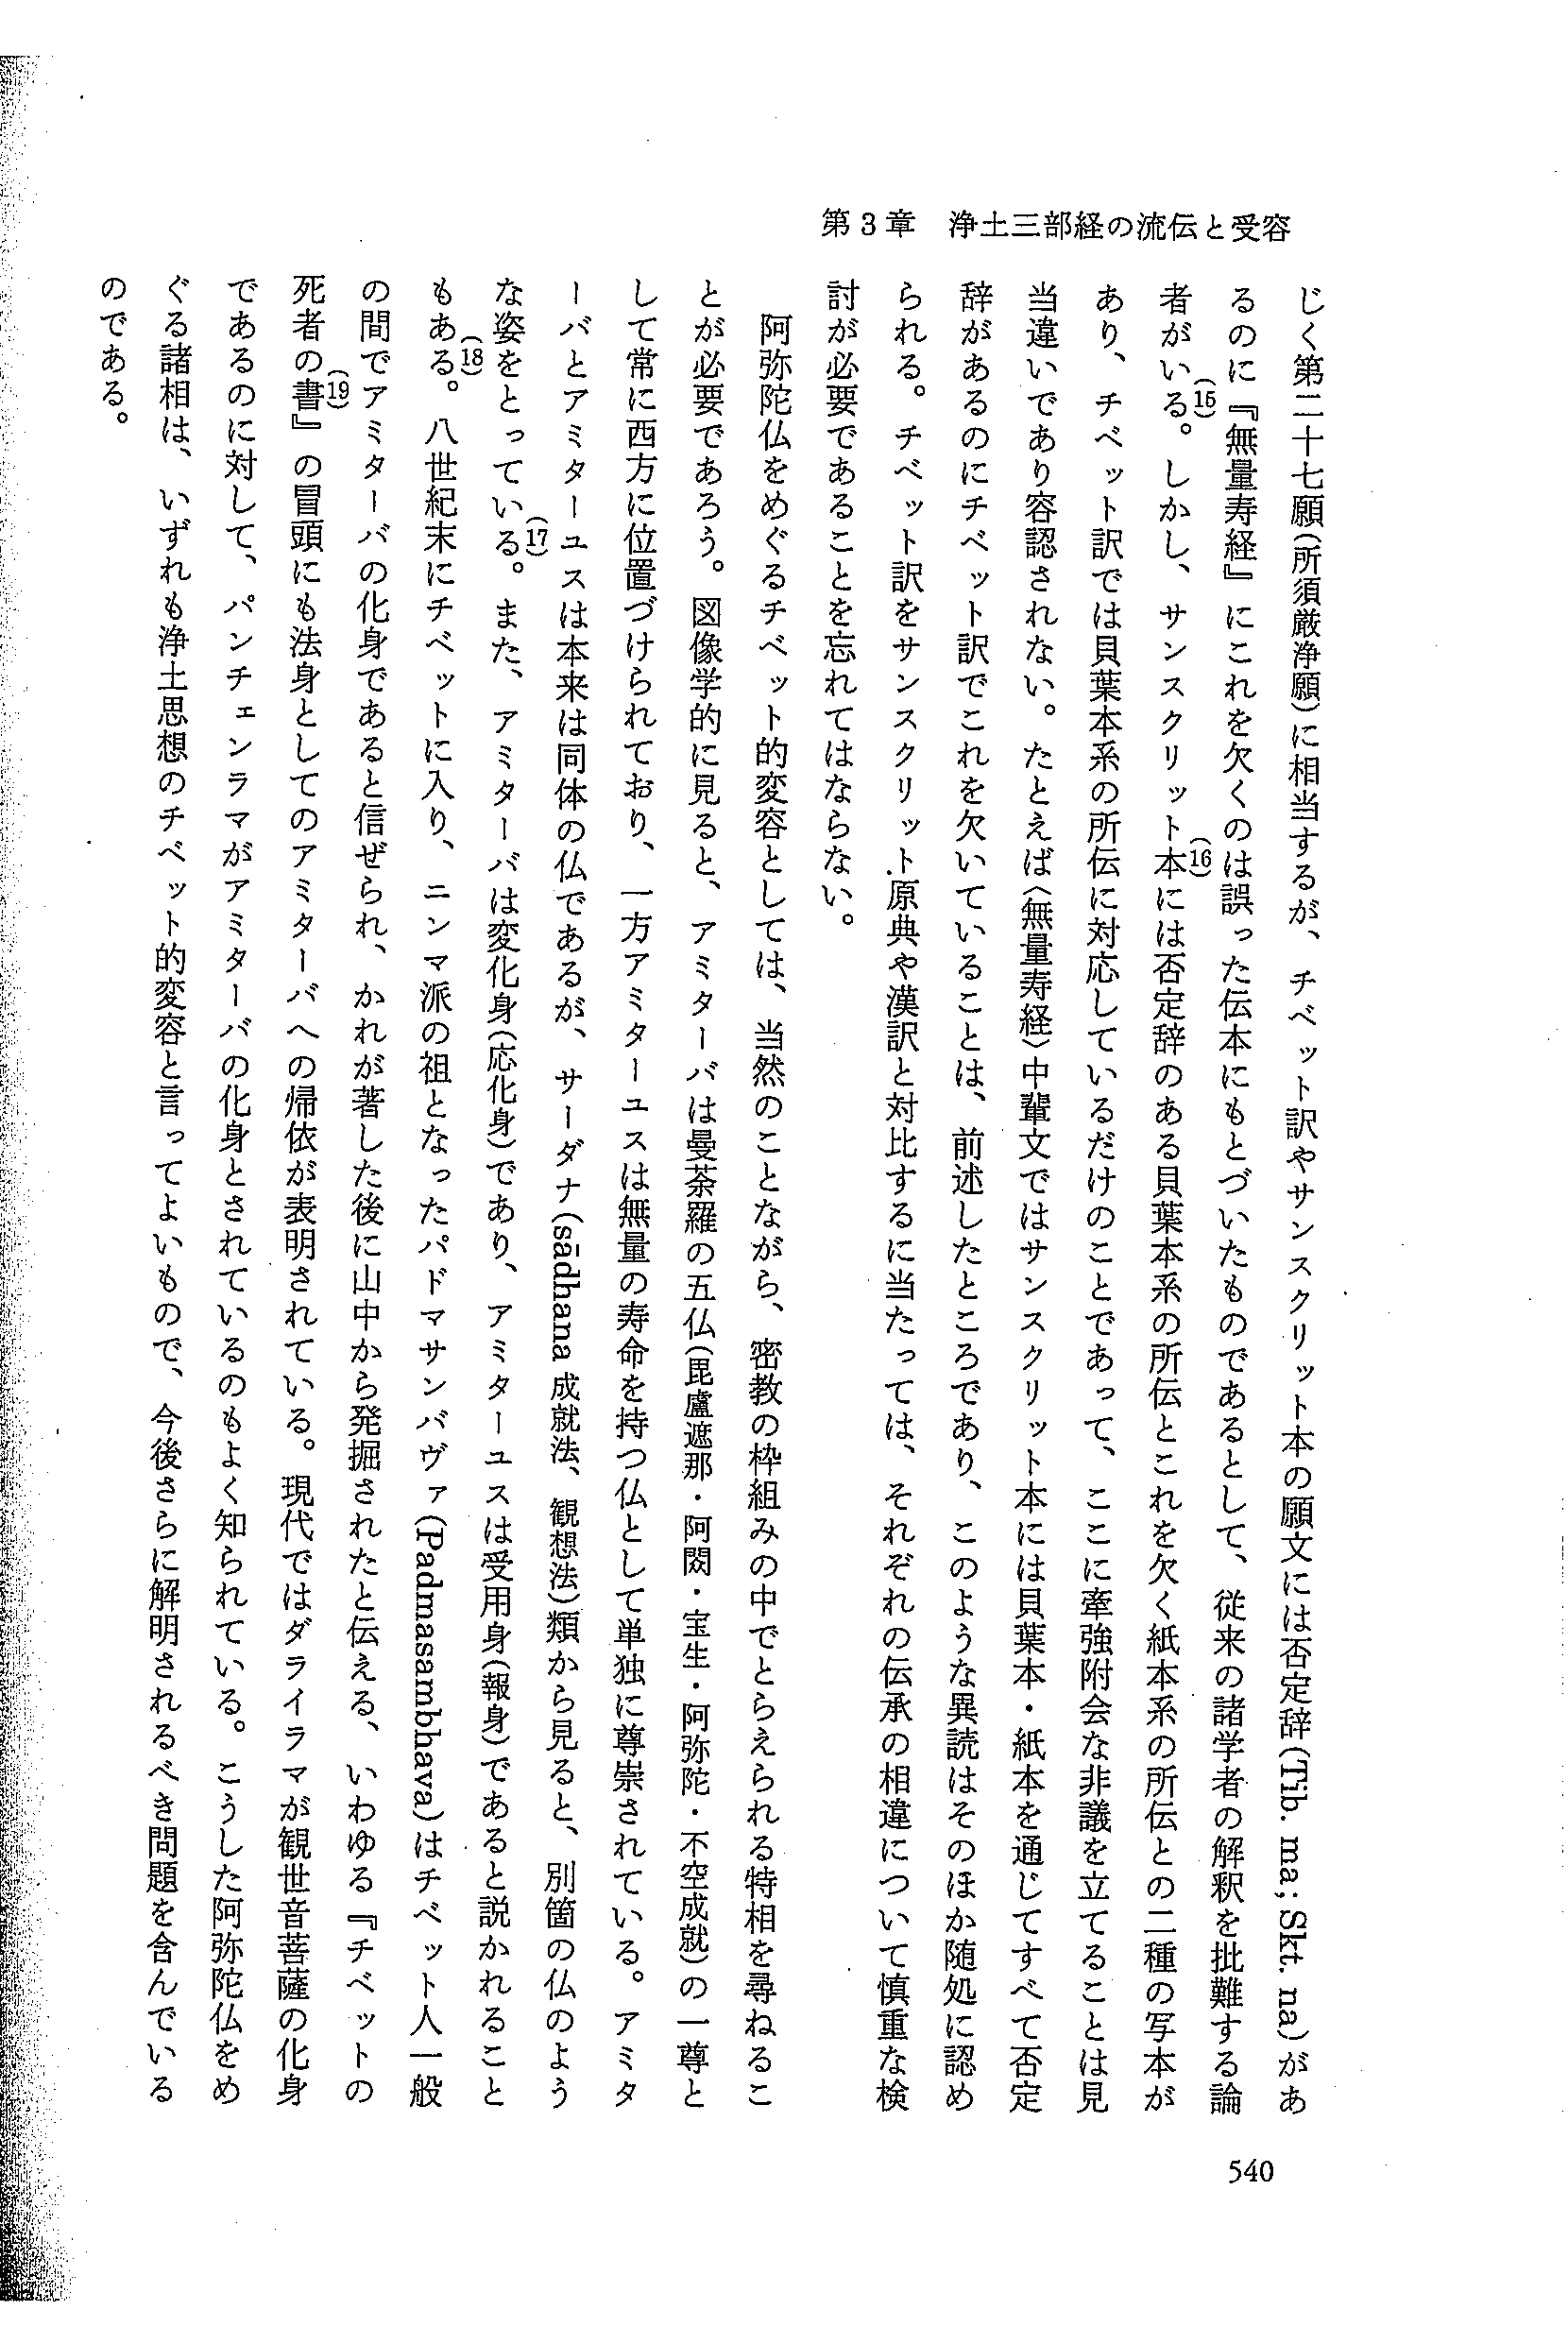 第3章　浄土三部経の流伝と受容
じく第二十七願(所須厳浄願)に相当するが、チベット訳やサンスクリット本の願文には否定辞(Tib. ma; Skt. na)があ
るのに『無量寿経』にこれを欠くのは誤った伝本にもとづいたものであるとして、従来の諸学者の解釈を批難する論
者がいる。(15)しかし、サンスクリット本(16)には否定辞のある貝葉本系の所伝とこれを欠く紙本系の所伝との二種の写本が
あり、チベット訳では貝葉本系の所伝に対応しているだけのことであって、ここに牽強附会な非議を立てることは見
当違いであり容認されない。たとえば〈無量寿経〉中輩文ではサンスクリット本には貝葉本・紙本を通じてすべて否定
辞があるのにチベット訳でこれを欠いていることは、前述したところであり、このような異読はそのほか随処に認め
られる。チベット訳をサンスクリット原典や漢訳と対比するに当たっては、それぞれの伝承の相違について慎重な検
討が必要であることを忘れてはならない。
　阿弥陀仏をめぐるチベット的変容としては、当然のことながら、密教の枠組みの中でとらえられる特相を尋ねるこ
とが必要であろう。図像学的に見ると、アミターバは曼荼羅の五仏(毘盧遮那・阿閦・宝生・阿弥陀・不空成就)の一尊と
して常に西方に位置づけられており、一方アミターユスは無量の寿命を持つ仏として単独に尊崇されている。アミタ
ーバとアミターユスは本来は同体の仏であるが、サーダナ(sādhana 成就法、観想法)類から見ると、別箇の仏のよう
な姿をとっている。(17)また、アミターバは変化身(応化身)であり、アミターユスは受用身(報身)であると説かれること
もある。(18)八世紀末にチベットに入り、ニンマ派の祖となったパドマサンバヴァ(Padmasambhava)はチベット人一般
の間でアミターバの化身であると信ぜられ、かれが著した後に山中から発掘されたと伝える、いわゆる『チベットの
死者の書』(19)の冒頭にも法身としてのアミターバへの帰依が表明されている。現代ではダライラマが観世音菩薩の化身
であるのに対して、パンチェンラマがアミターバの化身とされているのもよく知られている。こうした阿弥陀仏をめ
ぐる諸相は、いずれも浄土思想のチベット的変容と言ってよいもので、今後さらに解明されるべき問題を含んでいる
のである。
540